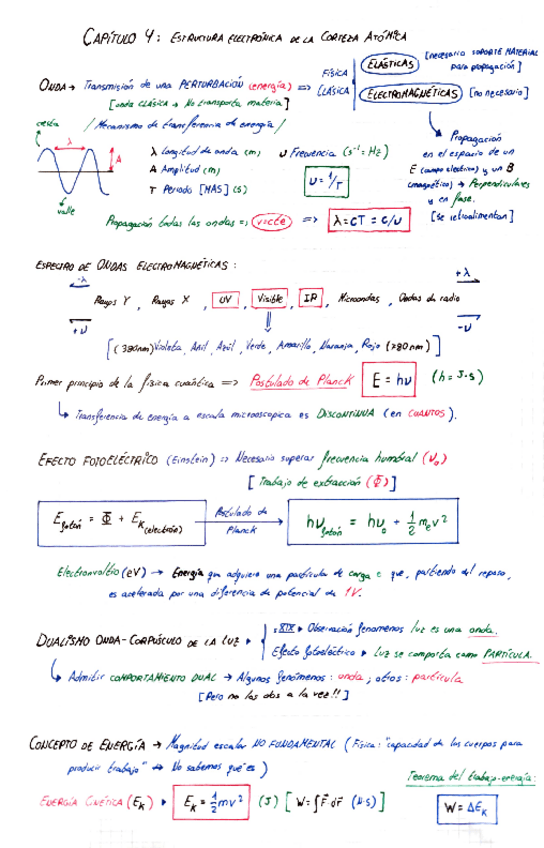 CAPÍTULO 4: ESTRUCTURA ELECTRÓNICA DE LA CORTEZA ATÓMICA
ONDA → Transmisión de una PERTURBACIÓN (energía) => FÍSICA CLÁSICA
ELÁSTICAS [necesario SOPORTE MATERIAL para propagación]
ELECTROMAGNÉTICAS [no necesario]
[onda CLÁSICA → No transporta materia]
/ Mecanismo de transferencia de energía /
cresta
λ
A
valle
λ Longitud de onda (m)
A Amplitud (m)
T Periodo [MAS] (s)
ν Frecuencia (s⁻¹ = Hz)
ν = 1/T
Propagación
en el espacio de un
E (campo eléctrico) y un B
(magnético) → Perpendiculares
y en fase.
[se retroalimentan]
Propagación todas las ondas => v=cte => λ = CT = C/ν
ESPECTRO DE ONDAS ELECTROMAGNÉTICAS:
-λ +λ
Rayos γ, Rayos X, UV, Visible, IR, Microondas, Ondas de radio
+ν -ν
[(380nm) Violeta, Añil, Azul, Verde, Amarillo, Naranja, Rojo (780nm)]
Primer principio de la física cuántica => Postulado de Planck E = hν (h = J·s)
↳ Transferencia de energía a escala microscópica es DISCONTINUA (en CUANTOS).
EFECTO FOTOELÉCTRICO (Einstein) => Necesario superar frecuencia humbral (ν₀)
[Trabajo de extracción (Φ)]
E fotón = Φ + Ek (electrón)
Postulado de Planck
hν fotón = hν₀ + 1/2 mₑv²
Electronvoltio (eV) → Energía que adquiere una partícula de carga e que, partiendo del reposo,
es acelerada por una diferencia de potencial de 1V.
DUALISMO ONDA-CORPÚSCULO DE LA LUZ
s.XIX ▸ Observación fenómenos luz es una onda.
Efecto fotoeléctrico ▸ Luz se comporta como PARTÍCULA.
↳ Admitir COMPORTAMIENTO DUAL → Algunos fenómenos: onda; otros: partícula
[Pero no las dos a la vez!!]
CONCEPTO DE ENERGÍA → Magnitud escalar NO FUNDAMENTAL (Física: "capacidad de los cuerpos para
producir trabajo" → No sabemos qué es)
Teorema del trabajo-energía:
ENERGÍA CINÉTICA (Ek) ▸ Ek = 1/2 mv² (J) [W = ∫F dr (N·s)]
W = ΔEk